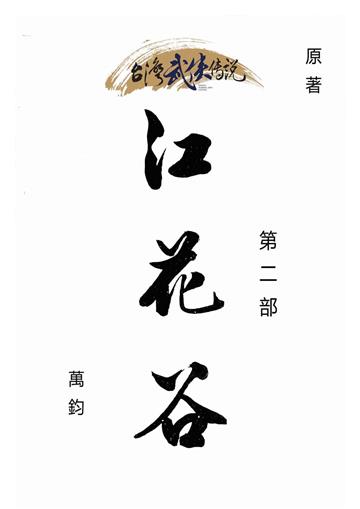 台灣武俠傳說
原著
第二部
江花谷
萬鈞